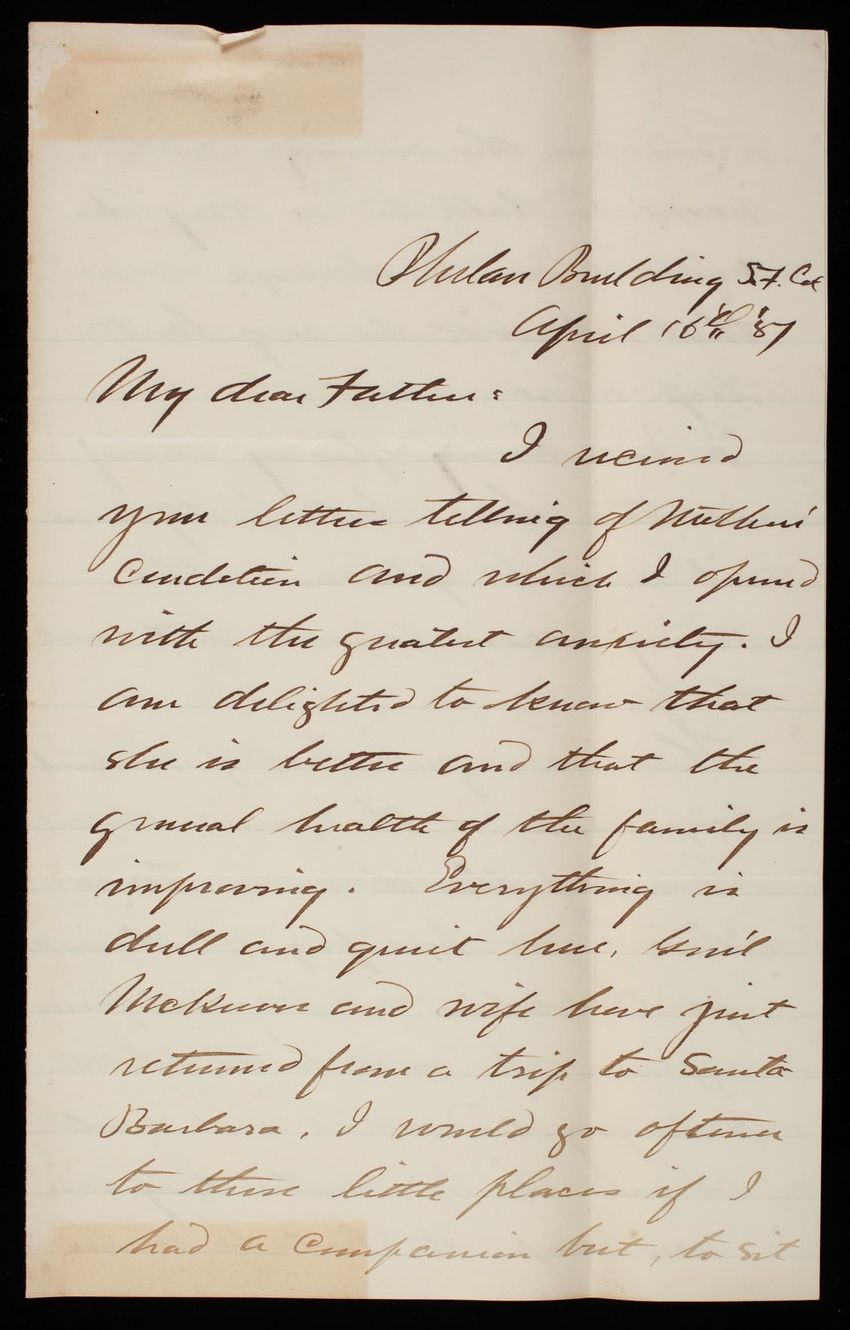 Phelan Building S.F. Cal
April 16th '87
My dear Father:
I received
your letter telling of Mother's
condition and which I opened
with the greatest anxiety. I
am delighted to know that
she is better and that the
general health of the family is
improving. Everything is
dull and quiet here, Gen'l
McKeever and wife have just
returned from a trip to Santa
Barbara. I would go oftener
to these little places if I
had a companion but, to sit